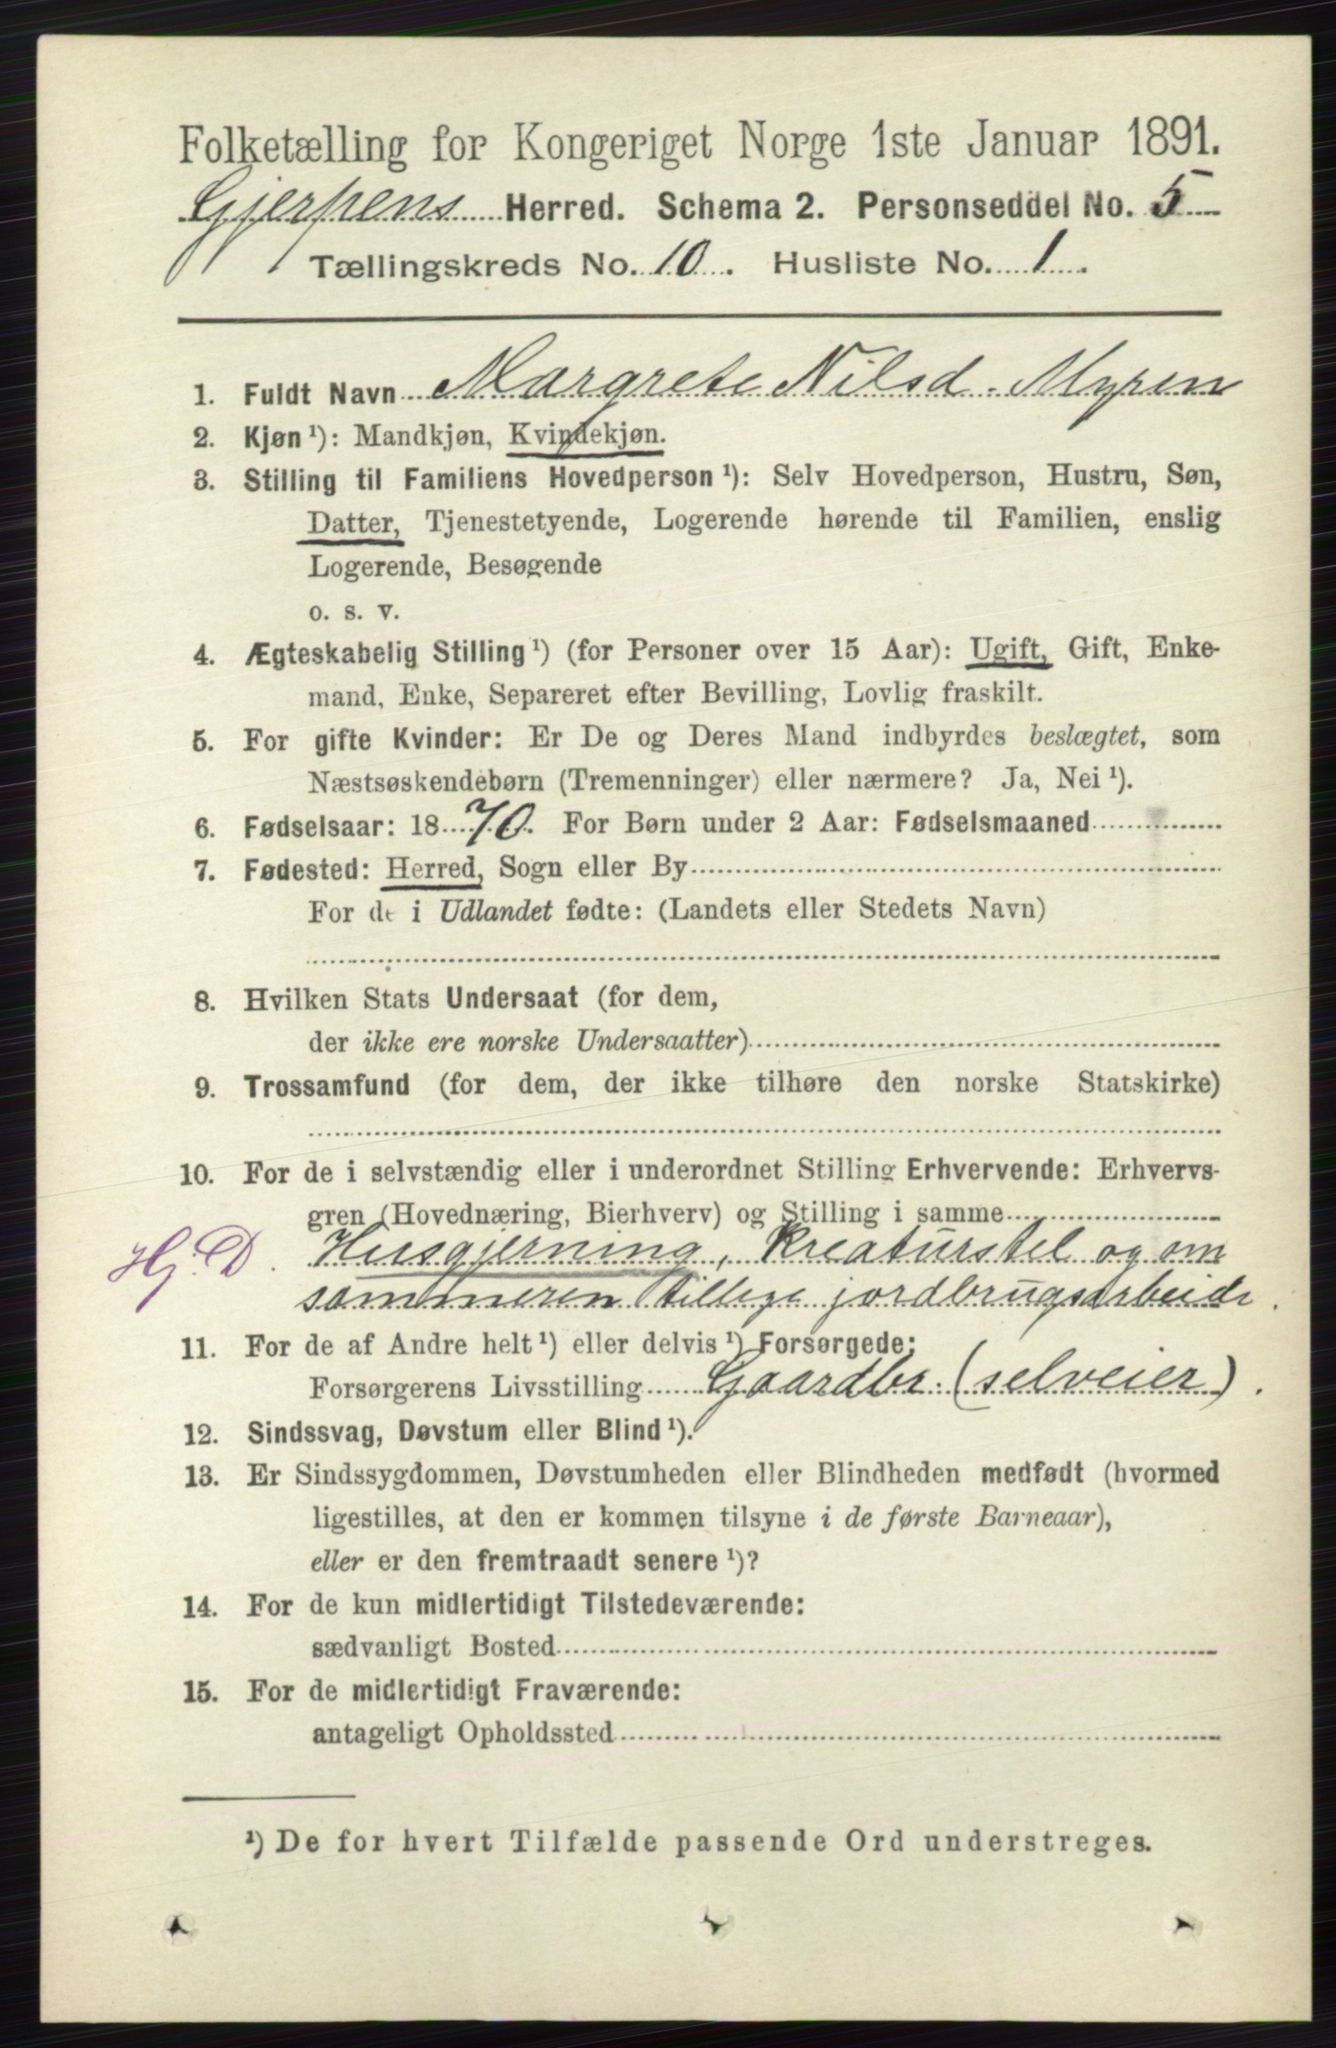 Folketælling for Kongeriget Norge 1ste Januar 1891.
Gjerpens Herred. Schema 2. Personseddel No. 5
Tællingskreds No. 10. Husliste No. 1.
1. Fuldt Navn Margrete Nilsd. Myren
2. Kjøn ¹): Mandkjøn, Kvindekjøn.
3. Stilling til Familiens Hovedperson ¹): Selv Hovedperson, Hustru, Søn,
Datter, Tjenestetyende, Logerende hørende til Familien, enslig
Logerende, Besøgende
o. s. v.
4. Ægteskabelig Stilling ¹) (for Personer over 15 Aar): Ugift, Gift, Enke-
mand, Enke, Separeret efter Bevilling, Lovlig fraskilt.
5. For gifte Kvinder: Er De og Deres Mand indbyrdes beslægtet, som
Næstsøskendebørn (Tremenninger) eller nærmere? Ja, Nei ¹).
6. Fødselsaar: 1870. For Børn under 2 Aar: Fødselsmaaned
7. Fødested: Herred, Sogn eller By
For de i Udlandet fødte: (Landets eller Stedets Navn)
8. Hvilken Stats Undersaat (for dem,
der ikke ere norske Undersaatter)
9. Trossamfund (for dem, der ikke tilhøre den norske Statskirke)
10. For de i selvstændig eller i underordnet Stilling Erhvervende: Erhvervs-
gren (Hovednæring, Bierhverv) og Stilling i samme
Hj. D. Husgjerning, kreaturstel og om
sommeren tillige jordbrugsarbeide.
11. For de af Andre helt ¹) eller delvis ¹) Forsørgede:
Forsørgerens Livsstilling Gaardbr. (selveier).
12. Sindssvag, Døvstum eller Blind ¹).
13. Er Sindssygdommen, Døvstumheden eller Blindheden medfødt (hvormed
ligestilles, at den er kommen tilsyne i de første Barneaar),
eller er den fremtraadt senere ¹)?
14. For de kun midlertidigt Tilstedeværende:
sædvanligt Bosted
15. For de midlertidigt Fraværende:
antageligt Opholdssted
¹) De for hvert Tilfælde passende Ord understreges.